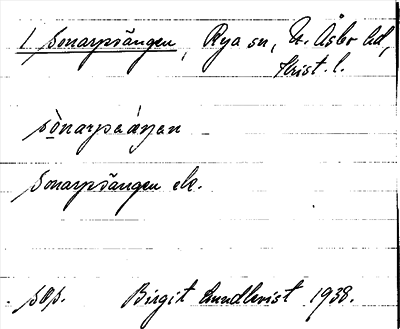 1 Sonarpsängen, Rya sn, N. Åsbo hd,
Krist. l.
sònarpsäŋen
Sonarpsängen ek.
Birgit Lundkvist 1938.